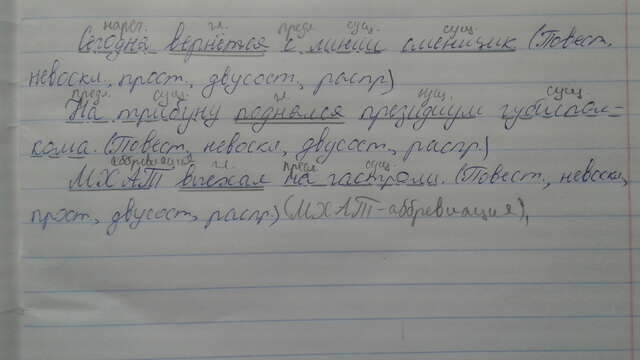 нареч. гл. предл сущ. сущ.
Сегодня вернётся с линии сменщик (Повест,
невоскл, прост, двусост, распр)
предл. сущ. гл. сущ. сущ.
На трибуну поднялся президиум губиспол-
кома. (Повест, невоскл, двусост, распр)
аббревиация гл. предл сущ.
МХАТ выехал на гастроли. (Повест, невоскл,
прост, двусост, распр) (МХАТ-аббревиация),